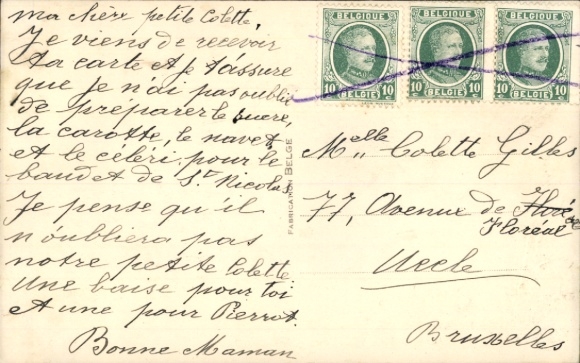 ma chère petite Colette,
Je viens de recevoir
ta carte et je t'assure
que je n'ai pas oublié
de préparer le sucre,
la carotte, le navet
et le céleri pour le
baudet de St Nicolas
Je pense qu'il
n'oubliera pas
notre petite Colette
Une baise pour toi
et une pour Pierrot.
Bonne Maman
FABRICATION BELGE
BELGIQUE
10 10
BELGIQUE
10 10
BELGIQUE
10 10
Melle Colette Gilles
77, Avenue de
Floréal
Uccle
Bruxelles